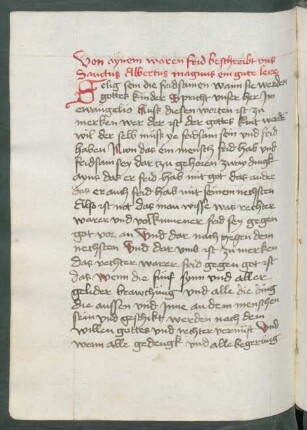 Von aynem waren frid beschreibt uns
Sanctus Albertus magnus ein gute lere
Selig sein die fridsamen wann sie werden
gottes kinder Spricht unser her Im
ewangelio Auß diesen worten ist zu
mercken wer der ist der gottes kint werden
wil der selb muß ye fridsam sein und frid
haben Nun das ein mensch frid hab und
fridsam sey dar zu gehoren zway dingk
ayns das er frid hab mit got das ander
das er auch frid hab mit seinem nechsten
Also ist not das man wisse was rechter
warer und volkumener frid sey gegen
got vor an Und dar nach gegen dem
nechsten Und dar umb ist zu mercken
das rechter warer frid gegen got ist
das wenn die funf synn und aller
gelider brawchung und alle die ding
die aussen und Inne an dem menschen
sein und geschikt werden nach dem
willen gottes und rechter vernuft Und
wenn alle gedengk und alle begerung